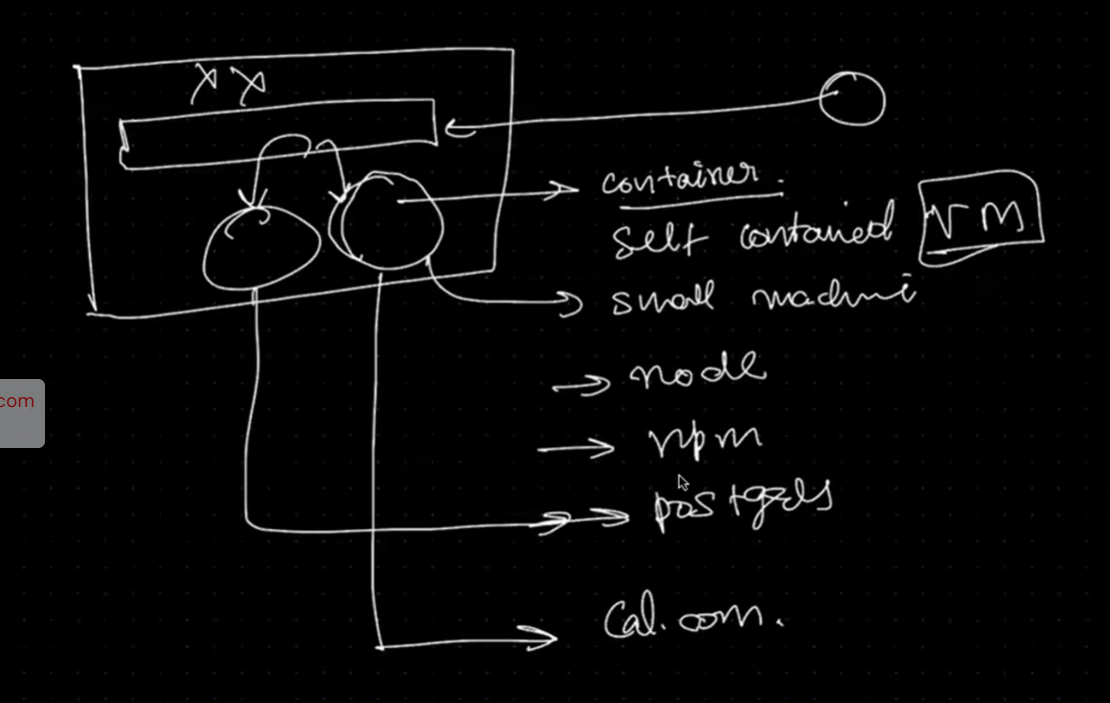 XX
container.
self contained VM
small machine
com
node
npm
postgres
Cal.com.